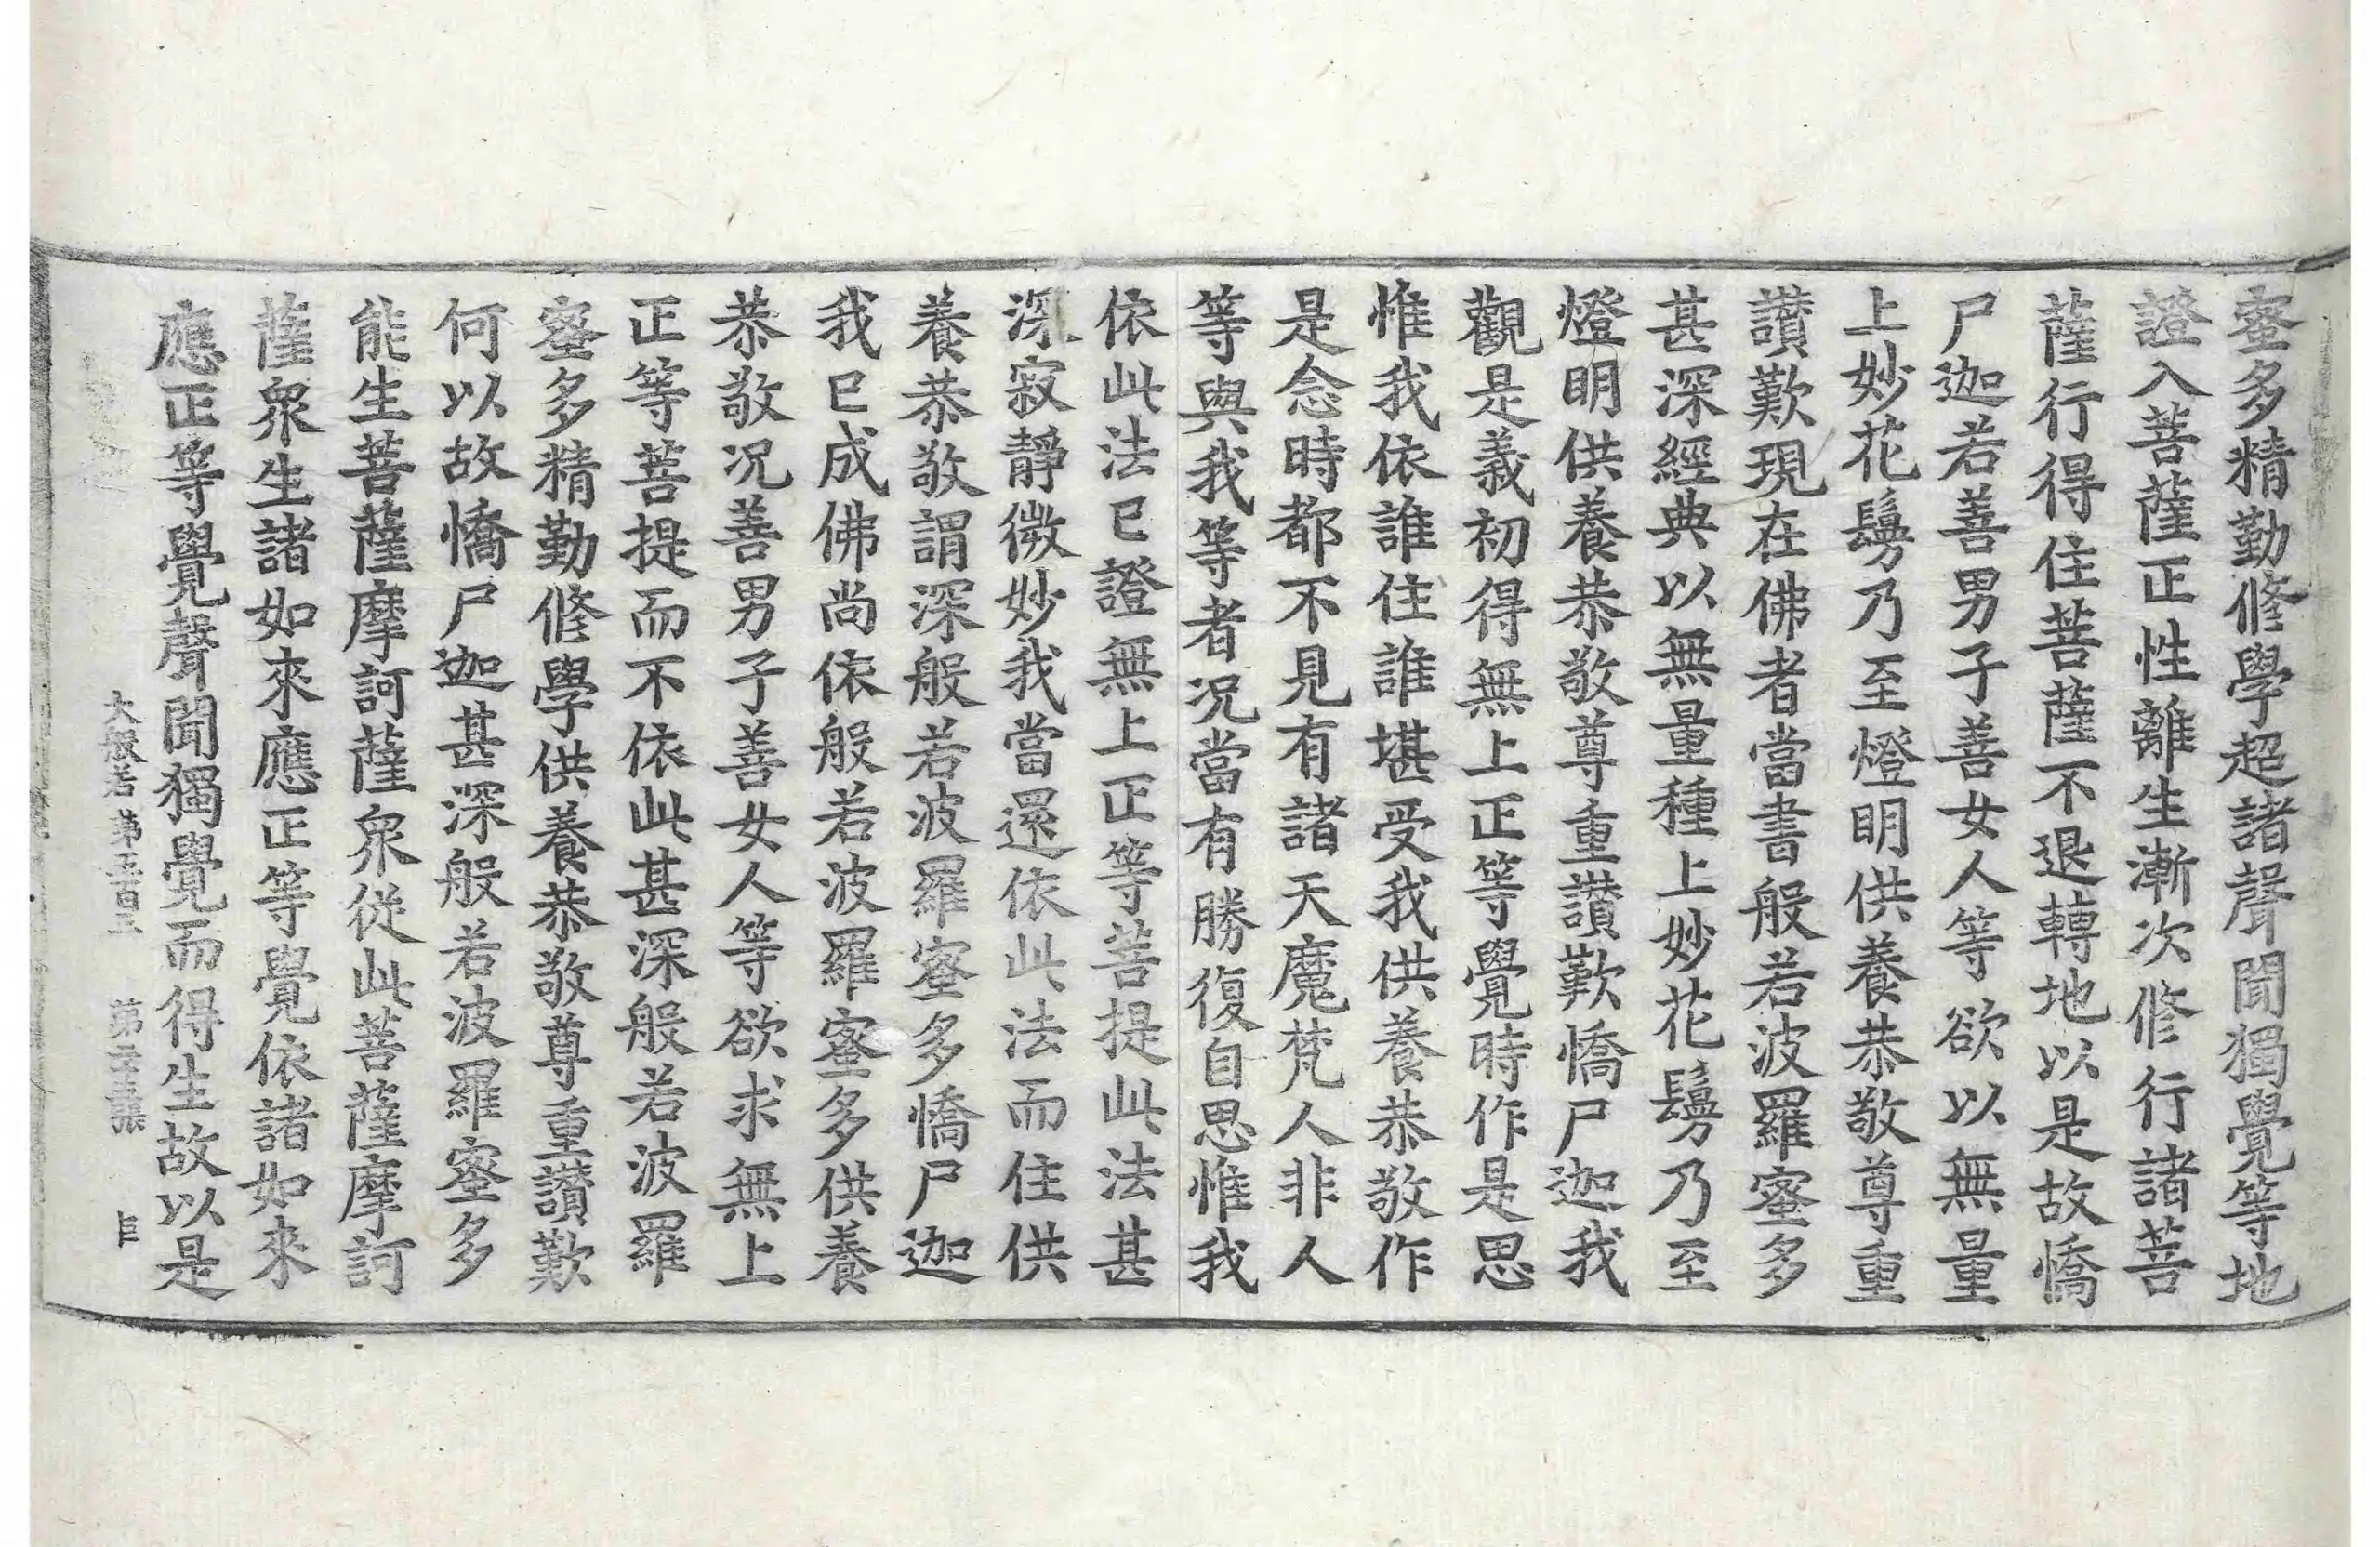 蜜多精勤修學超諸聲聞獨覺等地
證入菩薩正性離生漸次修行諸菩
薩行得住菩薩不退轉地以是故憍
尸迦若善男子善女人等欲以無量
上妙花鬘乃至燈明供養恭敬尊重
讚歎現在佛者當書般若波羅蜜多
甚深經典以無量種上妙花鬘乃至
燈明供養恭敬尊重讚歎憍尸迦我
觀是義初得無上正等覺時作是思
惟我依誰住誰堪受我供養恭敬作
是念時都不見有諸天魔梵人非人
等與我等者況當有勝復自思惟我
依此法已證無上正等菩提此法甚
深寂靜微妙我當還依此法而住供
養恭敬謂深般若波羅蜜多憍尸迦
我已成佛尚依般若波羅蜜多供養
恭敬况善男子善女人等欲求無上
正等菩提而不依此甚深般若波羅
蜜多精勤修學供養恭敬尊重讚歎
何以故憍尸迦甚深般若波羅蜜多
能生菩薩摩訶薩衆從此菩薩摩訶
薩衆生諸如來應正等覺依諸如來
應正等覺聲聞獨覺而得生故以是
大般若 第五百三 第二十三張